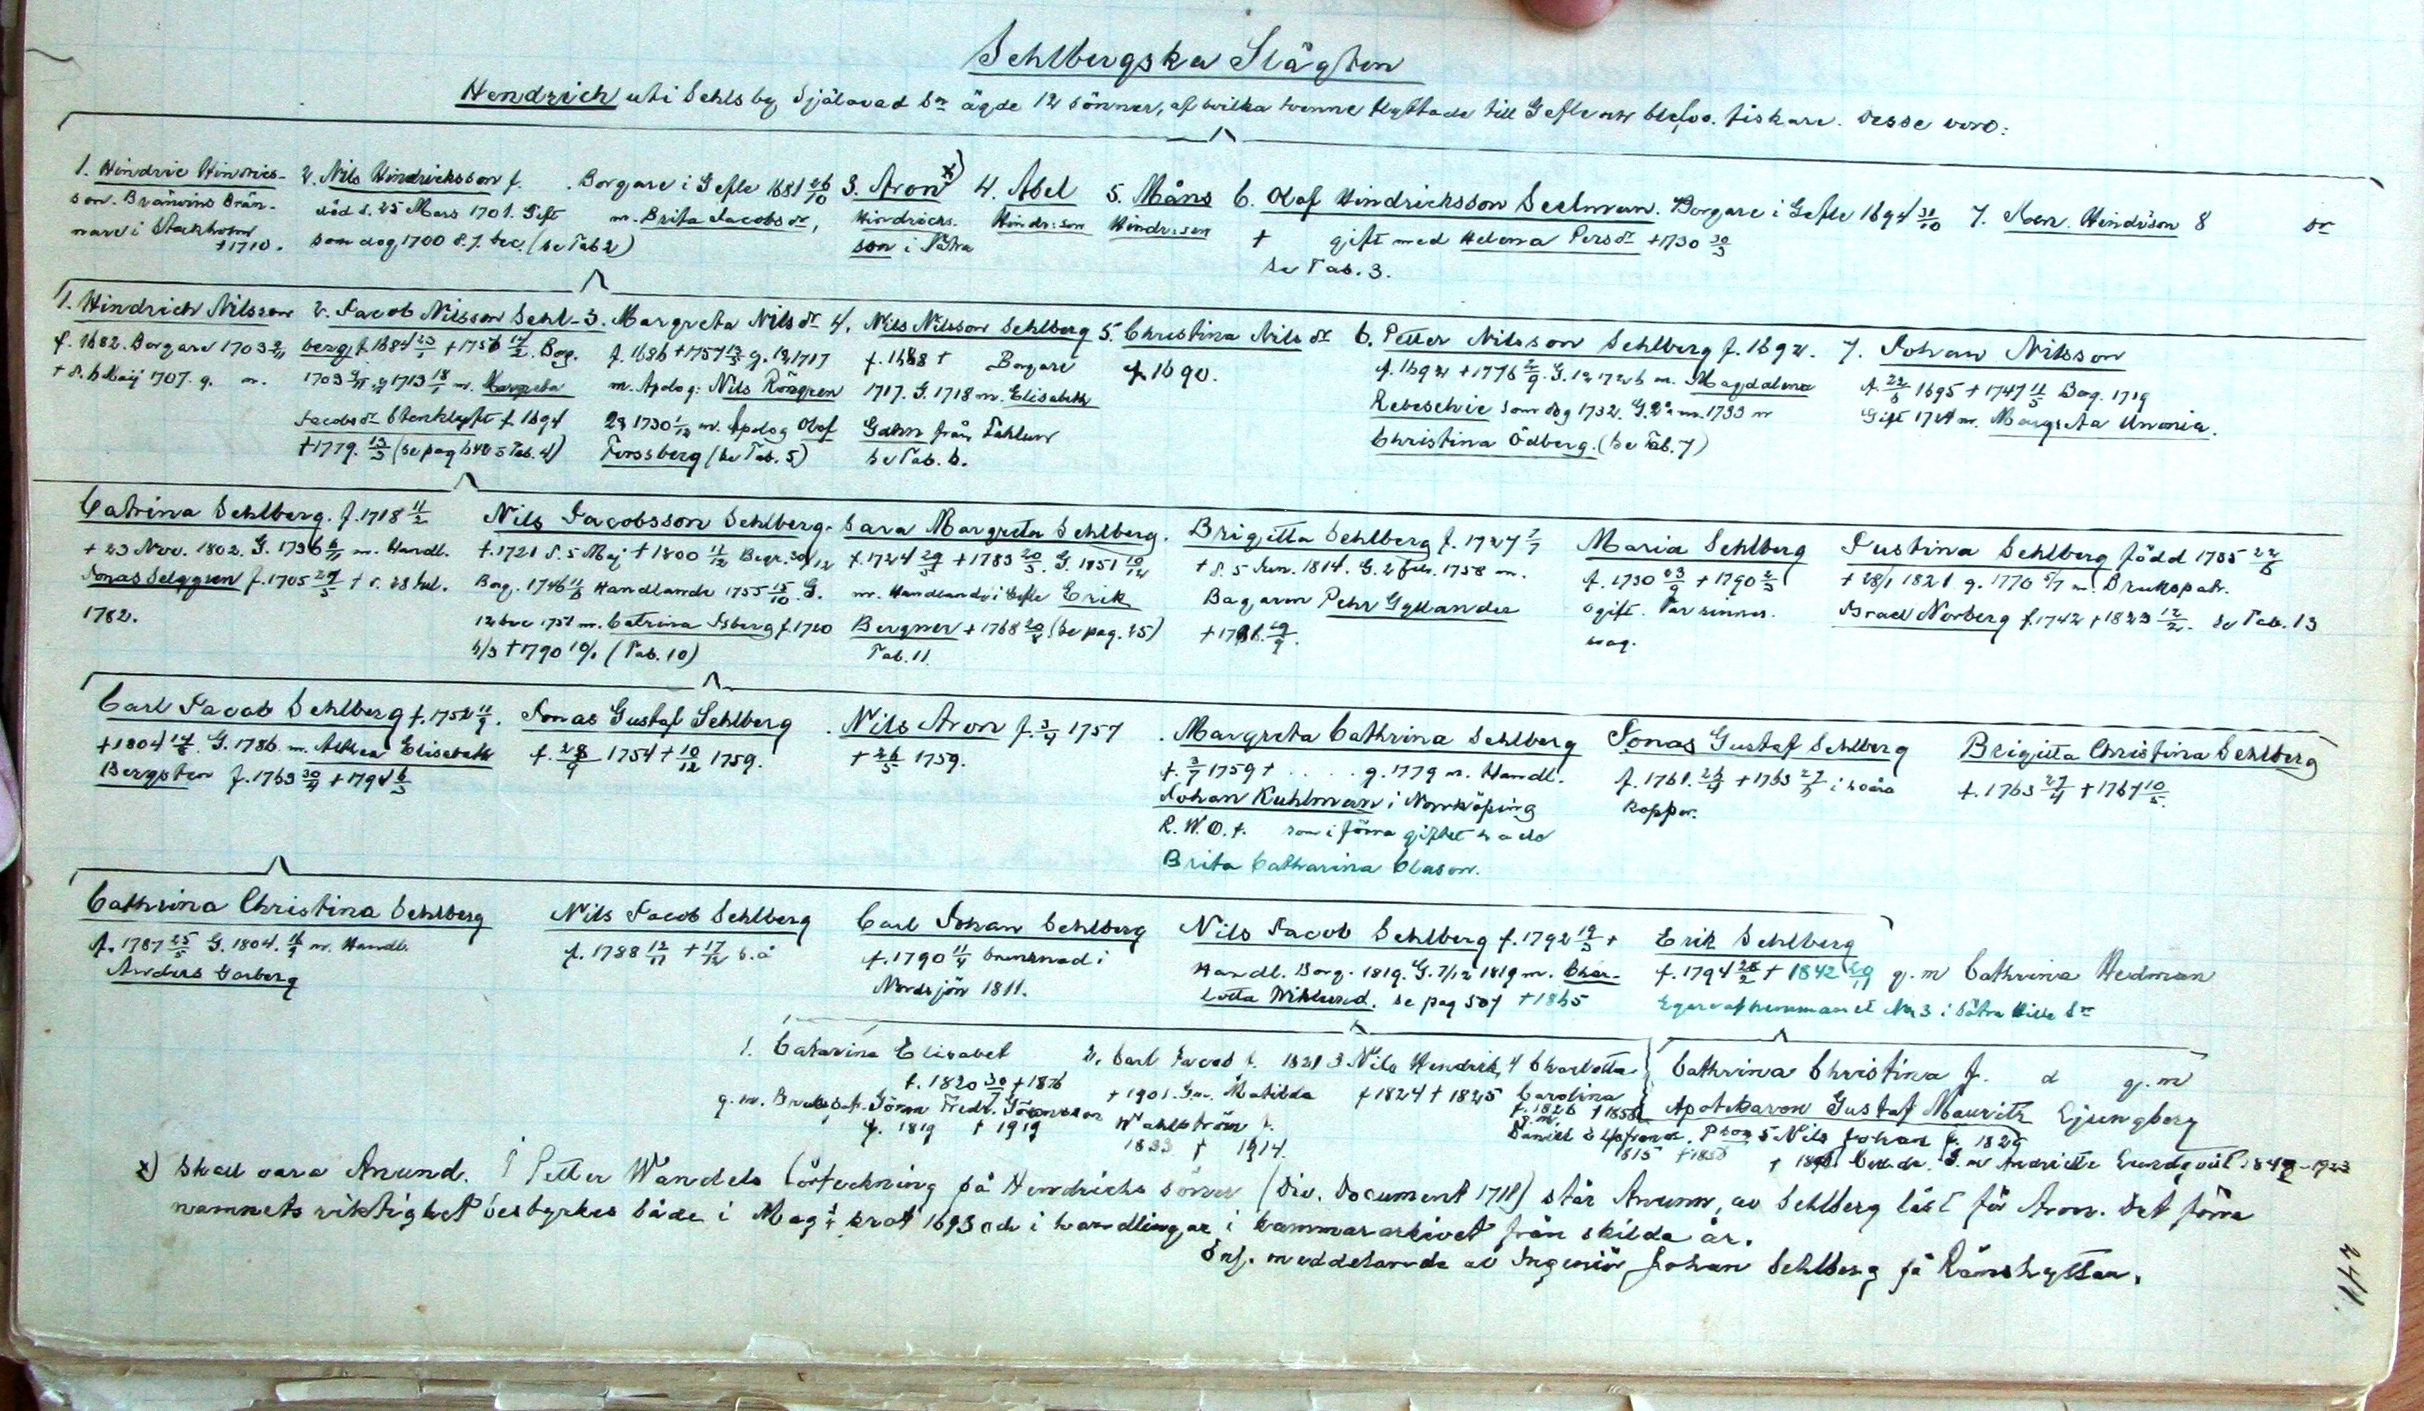 Sehlbergska Slägten
Hendrich uti Sehls by Själavad Sn ägde 12 sönner, af hvilka tvenne flyttade till Gefle och blefvo fiskare. Desse voro:
1. Hindric Hinrics-
son. Bränvins Brän-
nare i Stockholm
+1710.
2. Nils Hindricksson f. . Borgare i Gefle 1681 26/10
död d. 25 Mars 1701. Gift m. Brita Jacobs dr,
som dog 1700 d. 7. dec. (se Tab 2)
3. Aron x)
Hindricks.
son i Sätra
4. Abel
Hindr:son
5. Måns
Hindr:son
6. Olof Hindricksson Seelman. Borgare i Gefle 1694 31/10
+ gift med Helena Pers dr +1730 30/3
se Tab. 3.
7. Hindrison 8
1. Hindrich Nilsson
f. 1682. Borgare 1703
+ d. 6 Maij 1707. g. m.
2. Jacob Nilsson Sehl-
berg f. 1684 23/1 +1756 14/2. Borg.
1709 g. 1713 18/1 m. Margreta
Jacobs dr Stenklyft f. 1694
+1779. 13/3 (se pag 640 o Tab. 4)
3. Margreta Nils dr
f. 1686 +1757 13/5 g. 1a 1717
m. Apolog: Nils Röngren
2g 1730 1/12 m. Apolog Olof
Forssberg (se Tab. 5)
4. Nils Nilsson Sehlberg
f. 1688 + Borgare
1717. G. 1718 m. Elisabeth
Gahn från Fahlun
se Tab. 6.
5. Christina Nils dr
f. 1690.
6. Petter Nilsson Sehlberg f. 1692.
f. 1692 +1776 2/9. G. 1a 1726 m. Magdalena
Rebeschie som dog 1732. G. 2a m. 1733 m
Christina Ödberg. (se Tab. 7)
7. Johan Nilsson
f. 22/6 1695 +1747 11/5 Borg. 1719
Gift 1724 m. Margreta Unonia.
Catrina Sehlberg. f. 1718 11/2
+ 23 Nov. 1802. G. 1736 m. Handl.
Jonas Selggren f. 1705 + d. 28 Jul.
1782.
Nils Jacobsson Sehlberg.
f. 1721 d. 5 Maj +1800 11/12 Begr. 30/12
Borg. 1746 11/6 Handlande 1755 15/10. G.
12 dec 1751 m. Catrina Isberg f. 1720
6/3 +1790 10/1 (Tab. 10)
Sara Margreta Sehlberg.
f. 1724 29/5 +1783 20/5. G. 1751 10/12
m. Handlande i Gefle Erik
Bergner +1768 (se pag. 25)
Tab. 11.
Brigitta Sehlberg f. 1727 7/7
+ d. 5 Jun. 1814. G. 2 feb. 1758 m.
Bagaren Pehr Gyllander
Maria Sehlberg
f. 1730 23/9 +1790 2/3
ogift.
Justina Sehlberg född 1735 22/6
+ 28/1 1821 g. 1770 m. Brukspatr.
Israel Norberg f. 1742 +1823 12/2. se Tab. 13
Carl Jacob Sehlberg f. 1752 11/9.
+1804 14/6. G. 1786 m. Althea Elisabeth
Bergsten f. 1763 30/4 +1794 6/3
Jonas Gustaf Sehlberg
f. 28/9 1754 + 10/12 1759.
Nils Aron f. 3/4 1757
+ 26/5 1759.
Margreta Cathrina Sehlberg
f. 3/7 1759 + . . . . g. 1779 m. Handl.
Johan Kuhlman i Norrköping
R. W. O. f. som i förra giftet hade
Brita Catharina Clason.
Jonas Gustaf Sehlberg
f. 1761. 26/4 +1763 27/6 i svåra
koppor.
Brigitta Christina Sehlberg
f. 1763 27/4 +1767 10/5.
Cathrina Christina Sehlberg
f. 1787 25/5 G. 1804. 16/9 m. Handl.
Anders Garberg
Nils Jacob Sehlberg
f. 1788 12/11 + 17/12 s. å
Carl Johan Sehlberg
f. 1790 11/4 drunknad i
Nordsjön 1811.
Nils Jacob Sehlberg f. 1792 19/3 +
Handl. Borg. 1819. G. 7/12 1819 m. Char-
lotta Wiklund. se pag 507 +1865
Erik Sehlberg
f. 1794 28/2 + 1842 g. m Cathrina Hedman
Egare af hemmanet No 3 i Sätra Hille Sn
1. Catarina Elisabet
f. 1820 30/7 +1876
g. m. Brukspat. Göran Fredr. Göransson
f. 1819 + 1919
2. Carl Jacob f. 1821
+ 1901. G. m. Matilda
Wahlström f.
1833 + 1914.
3 Nils Hendrik,
f 1824 + 1825
4 Charlotta
Carolina
f. 1826 +1858
g. m.
Daniel Elfstrand.
1815 +1858
5 Nils Johan f. 1829
G. m Andriette Lundqvist 1842-1923
Cathrina Christina f. d g. m
Apotekaren Gustaf Mauritz Ljungberg
x) Skall vara Anund. I Petter Wandels förteckning på Hendrichs söner (Div. Document 1718) står Anunn, av Sehlberg läst för Aron. Det förra
namnets riktighet bestyrkes både i Mag:s prot 1693 och i handlingar i kammararkivet från skilda år.
Enl. meddelande av Ingeniör Johan Sehlberg på Rämshyttan.
241.